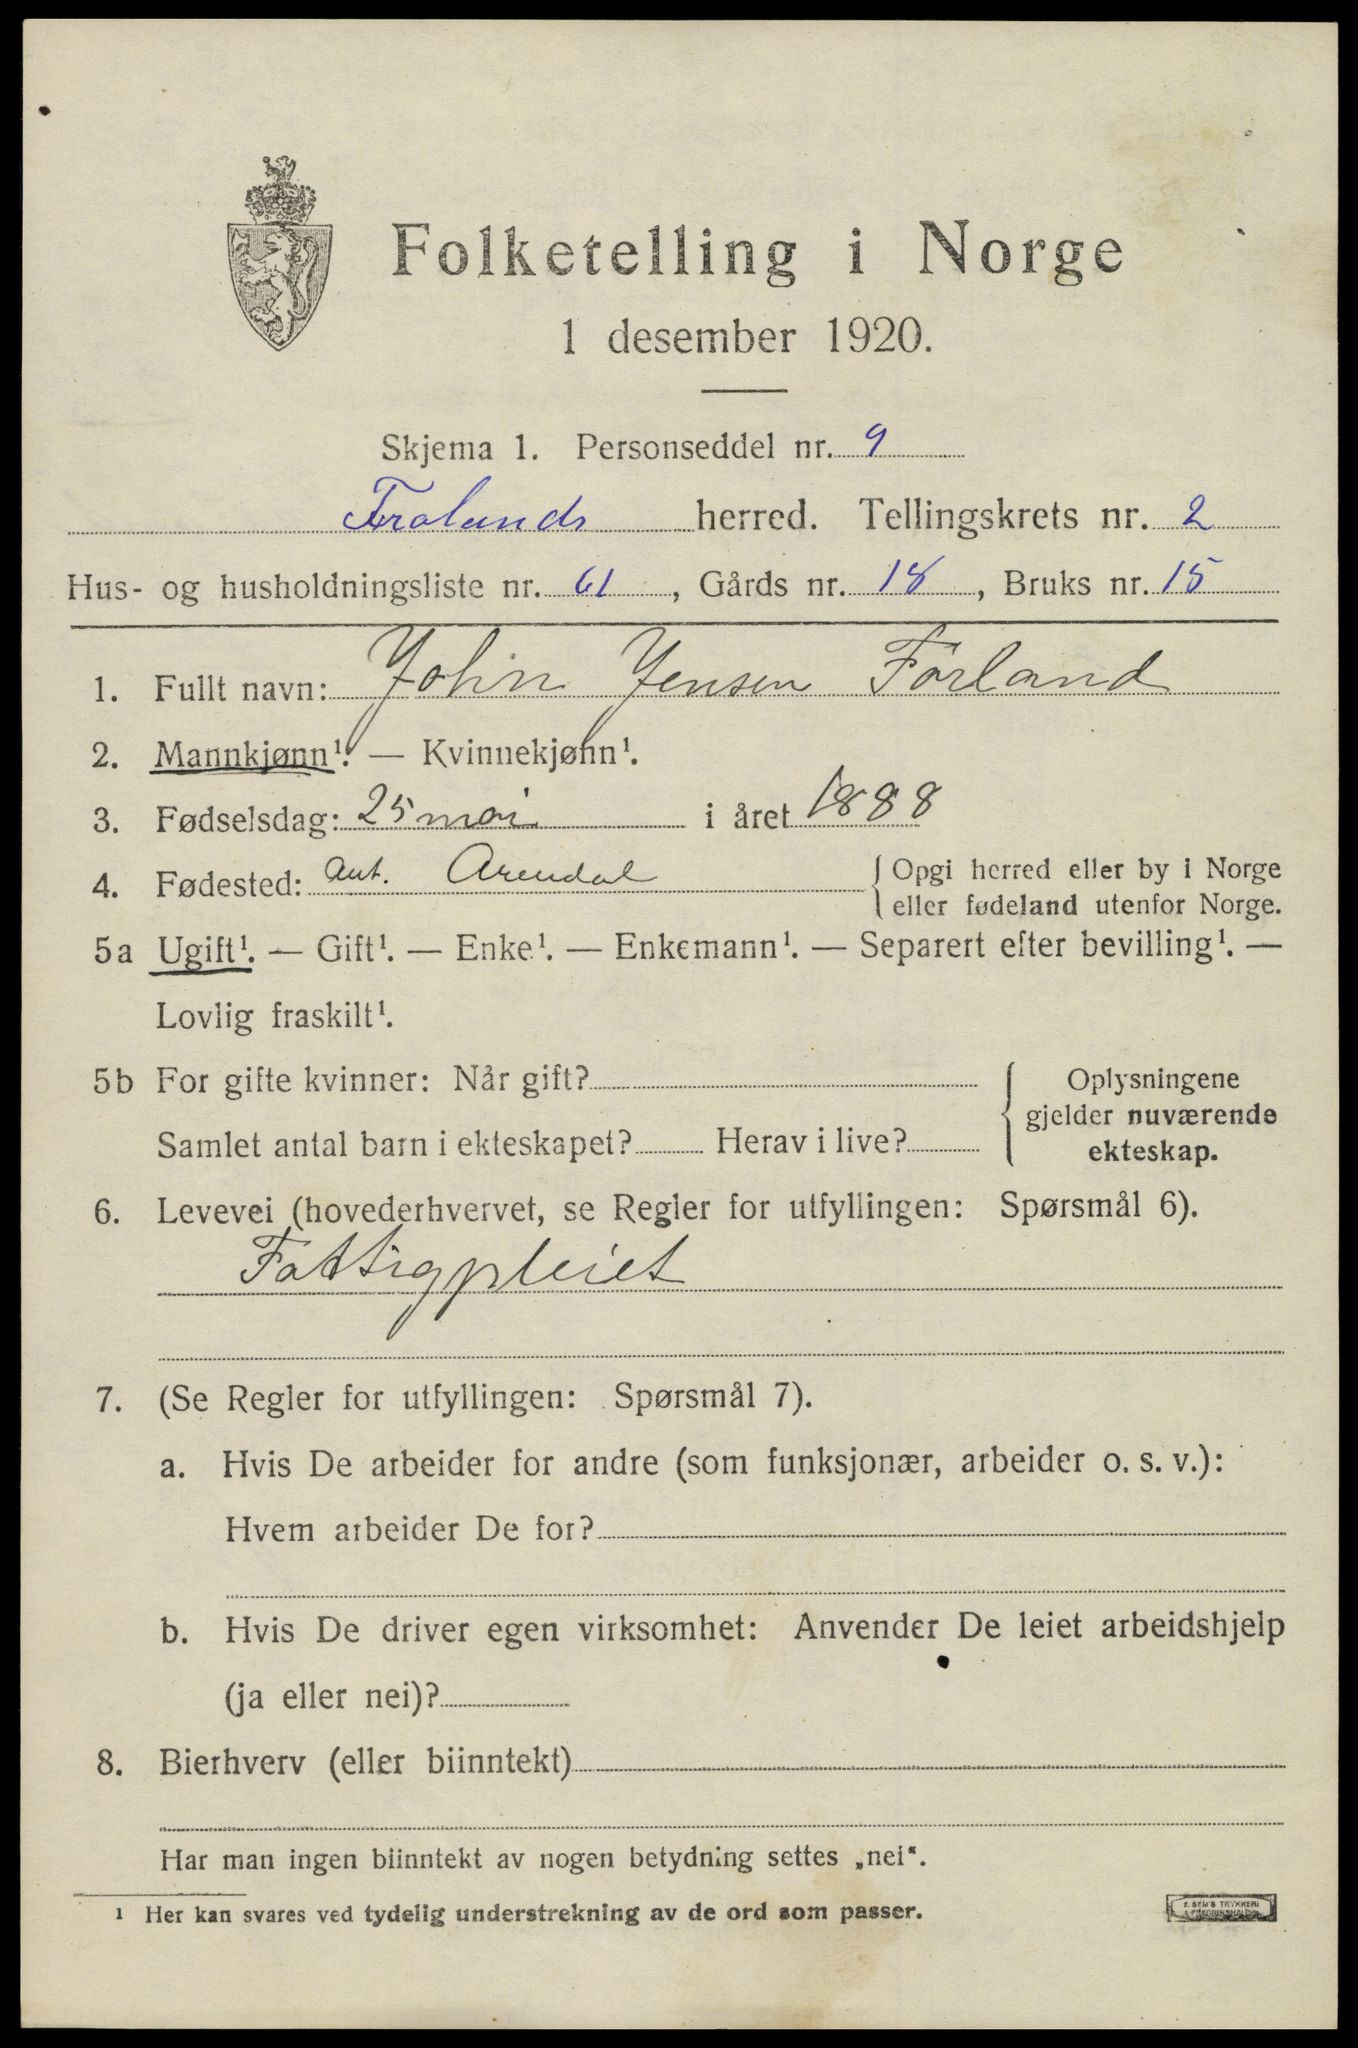 Folketelling i Norge
1 desember 1920.
Skjema 1. Personseddel nr. 9
Frolands herred. Tellingskrets nr. 2
Hus- og husholdningsliste nr. 61, Gårds nr. 18, Bruks nr. 15
1. Fullt navn: John Jensen Førland
2. Mannkjønn¹. — Kvinnekjønn¹.
3. Fødselsdag: 25 mai i året 1888
4. Fødested: Ant. Arendal { Opgi herred eller by i Norge
eller fødeland utenfor Norge.
5a Ugift¹. — Gift¹. — Enke¹. — Enkemann¹. — Separert efter bevilling¹. —
Lovlig fraskilt¹.
5b For gifte kvinner: Når gift?
Samlet antal barn i ekteskapet? Herav i live?
{ Oplysningene
gjelder nuværende
ekteskap.
6. Levevei (hovederhvervet, se Regler for utfyllingen: Spørsmål 6).
Fattigpleiet
7. (Se Regler for utfyllingen: Spørsmål 7).
a. Hvis De arbeider for andre (som funksjonær, arbeider o. s. v.):
Hvem arbeider De for?
b. Hvis De driver egen virksomhet: Anvender De leiet arbeidshjelp
(ja eller nei)?
8. Bierhverv (eller biinntekt)
Har man ingen biinntekt av nogen betydning settes „nei“.
¹ Her kan svares ved tydelig understrekning av de ord som passer.
E. SEM'S TRYKKERI
FREDRIKSHALD